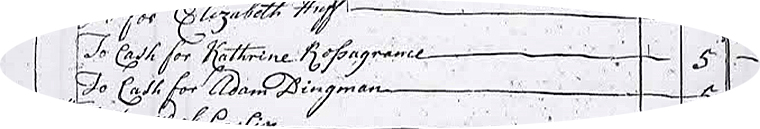 for Elizabeth Huff
To Cash for Kathrine Rossagrance 5
To Cash for Adam Dingman